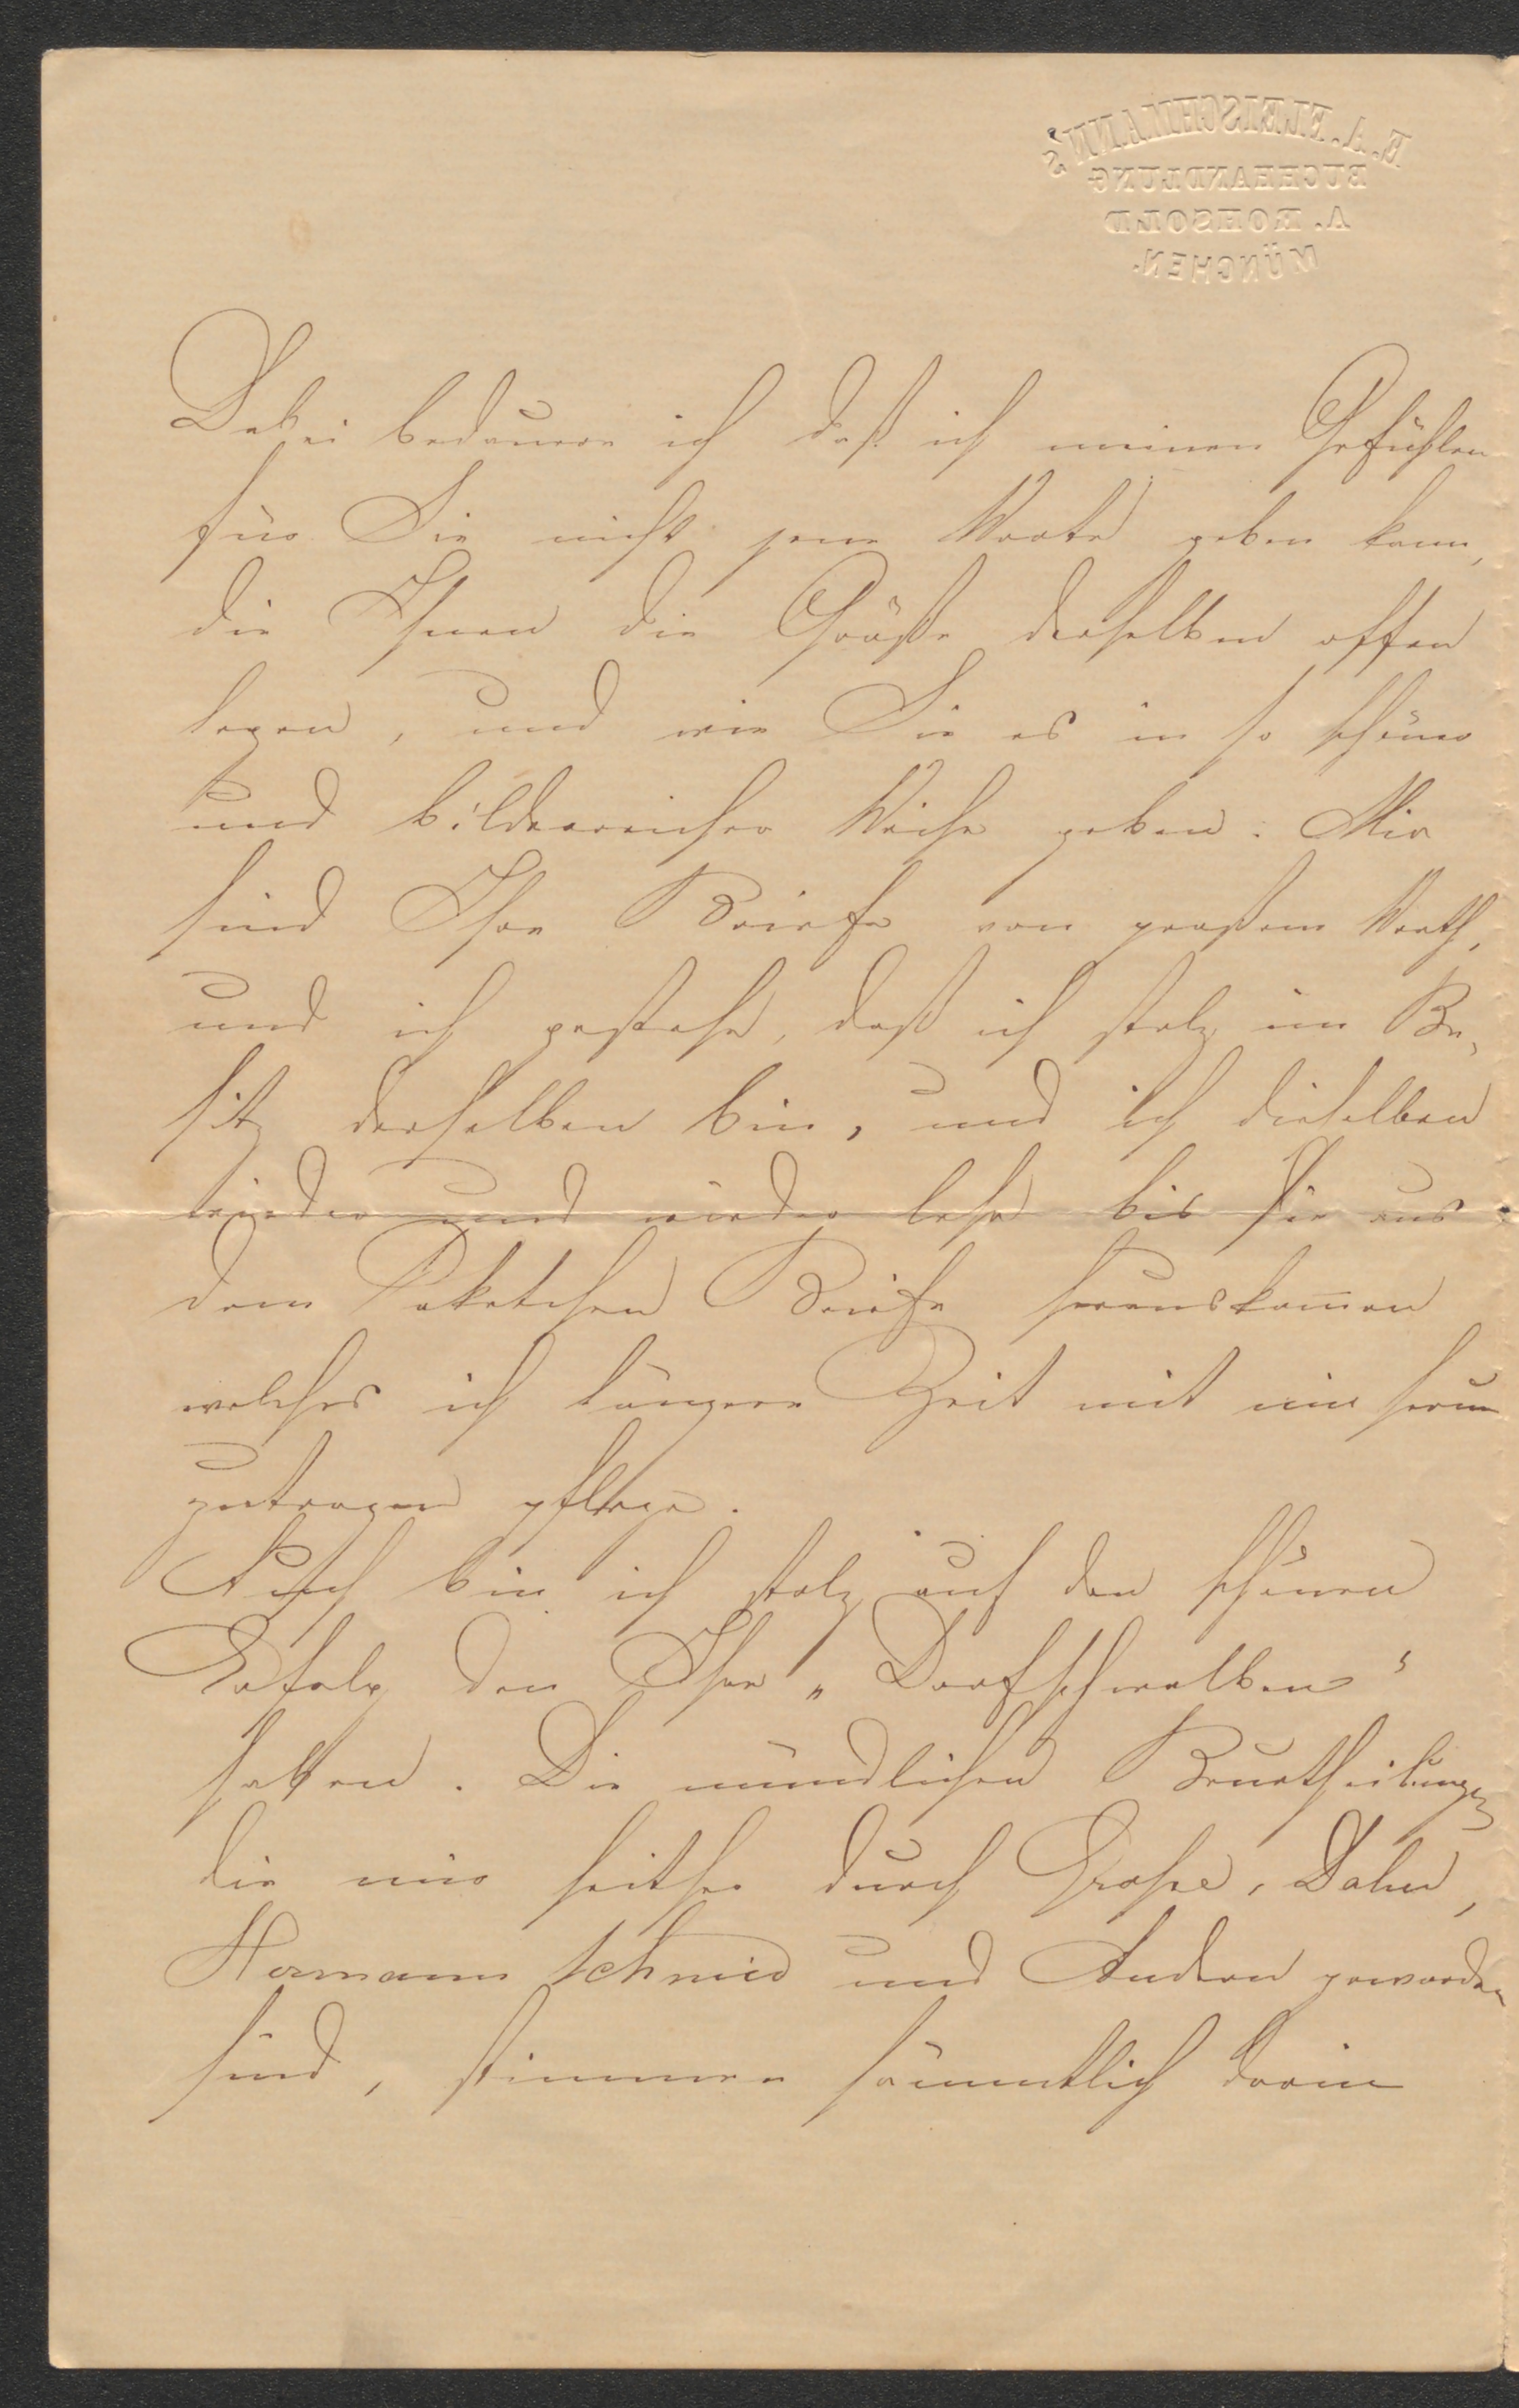 E. A. FLEISCHMANN'S
BUCHHANDLUNG
A. ROHSOLD
MÜNCHEN.
Dabei bedauere ich daß ich meinen Gefühlen
für Sie nicht jene Worte geben kann,
die Ihnen die Größe derselben offen
legen, und wie Sie es in so schöner
und bilderreicher Weise geben. Mir
sind Ihre Briefe von großem Werth,
und ich gestehe, daß ich stolz im Be-
sitz derselben bin, und ich dieselben
wieder und wieder lese bis sie aus
dem Paketchen Briefe herauskom̄en
welches ich längere Zeit mit mir herum
zutragen pflege.
Auch bin ich stolz auf den schönen
Erfolg den Ihre „Dorfschwalben"
haben. Die mündlichen Beurtheilungen
die mir seither durch Grosse, Dahn,
Hermann Schmid und Andern geworden
sind, stimmen sämmtlich darin